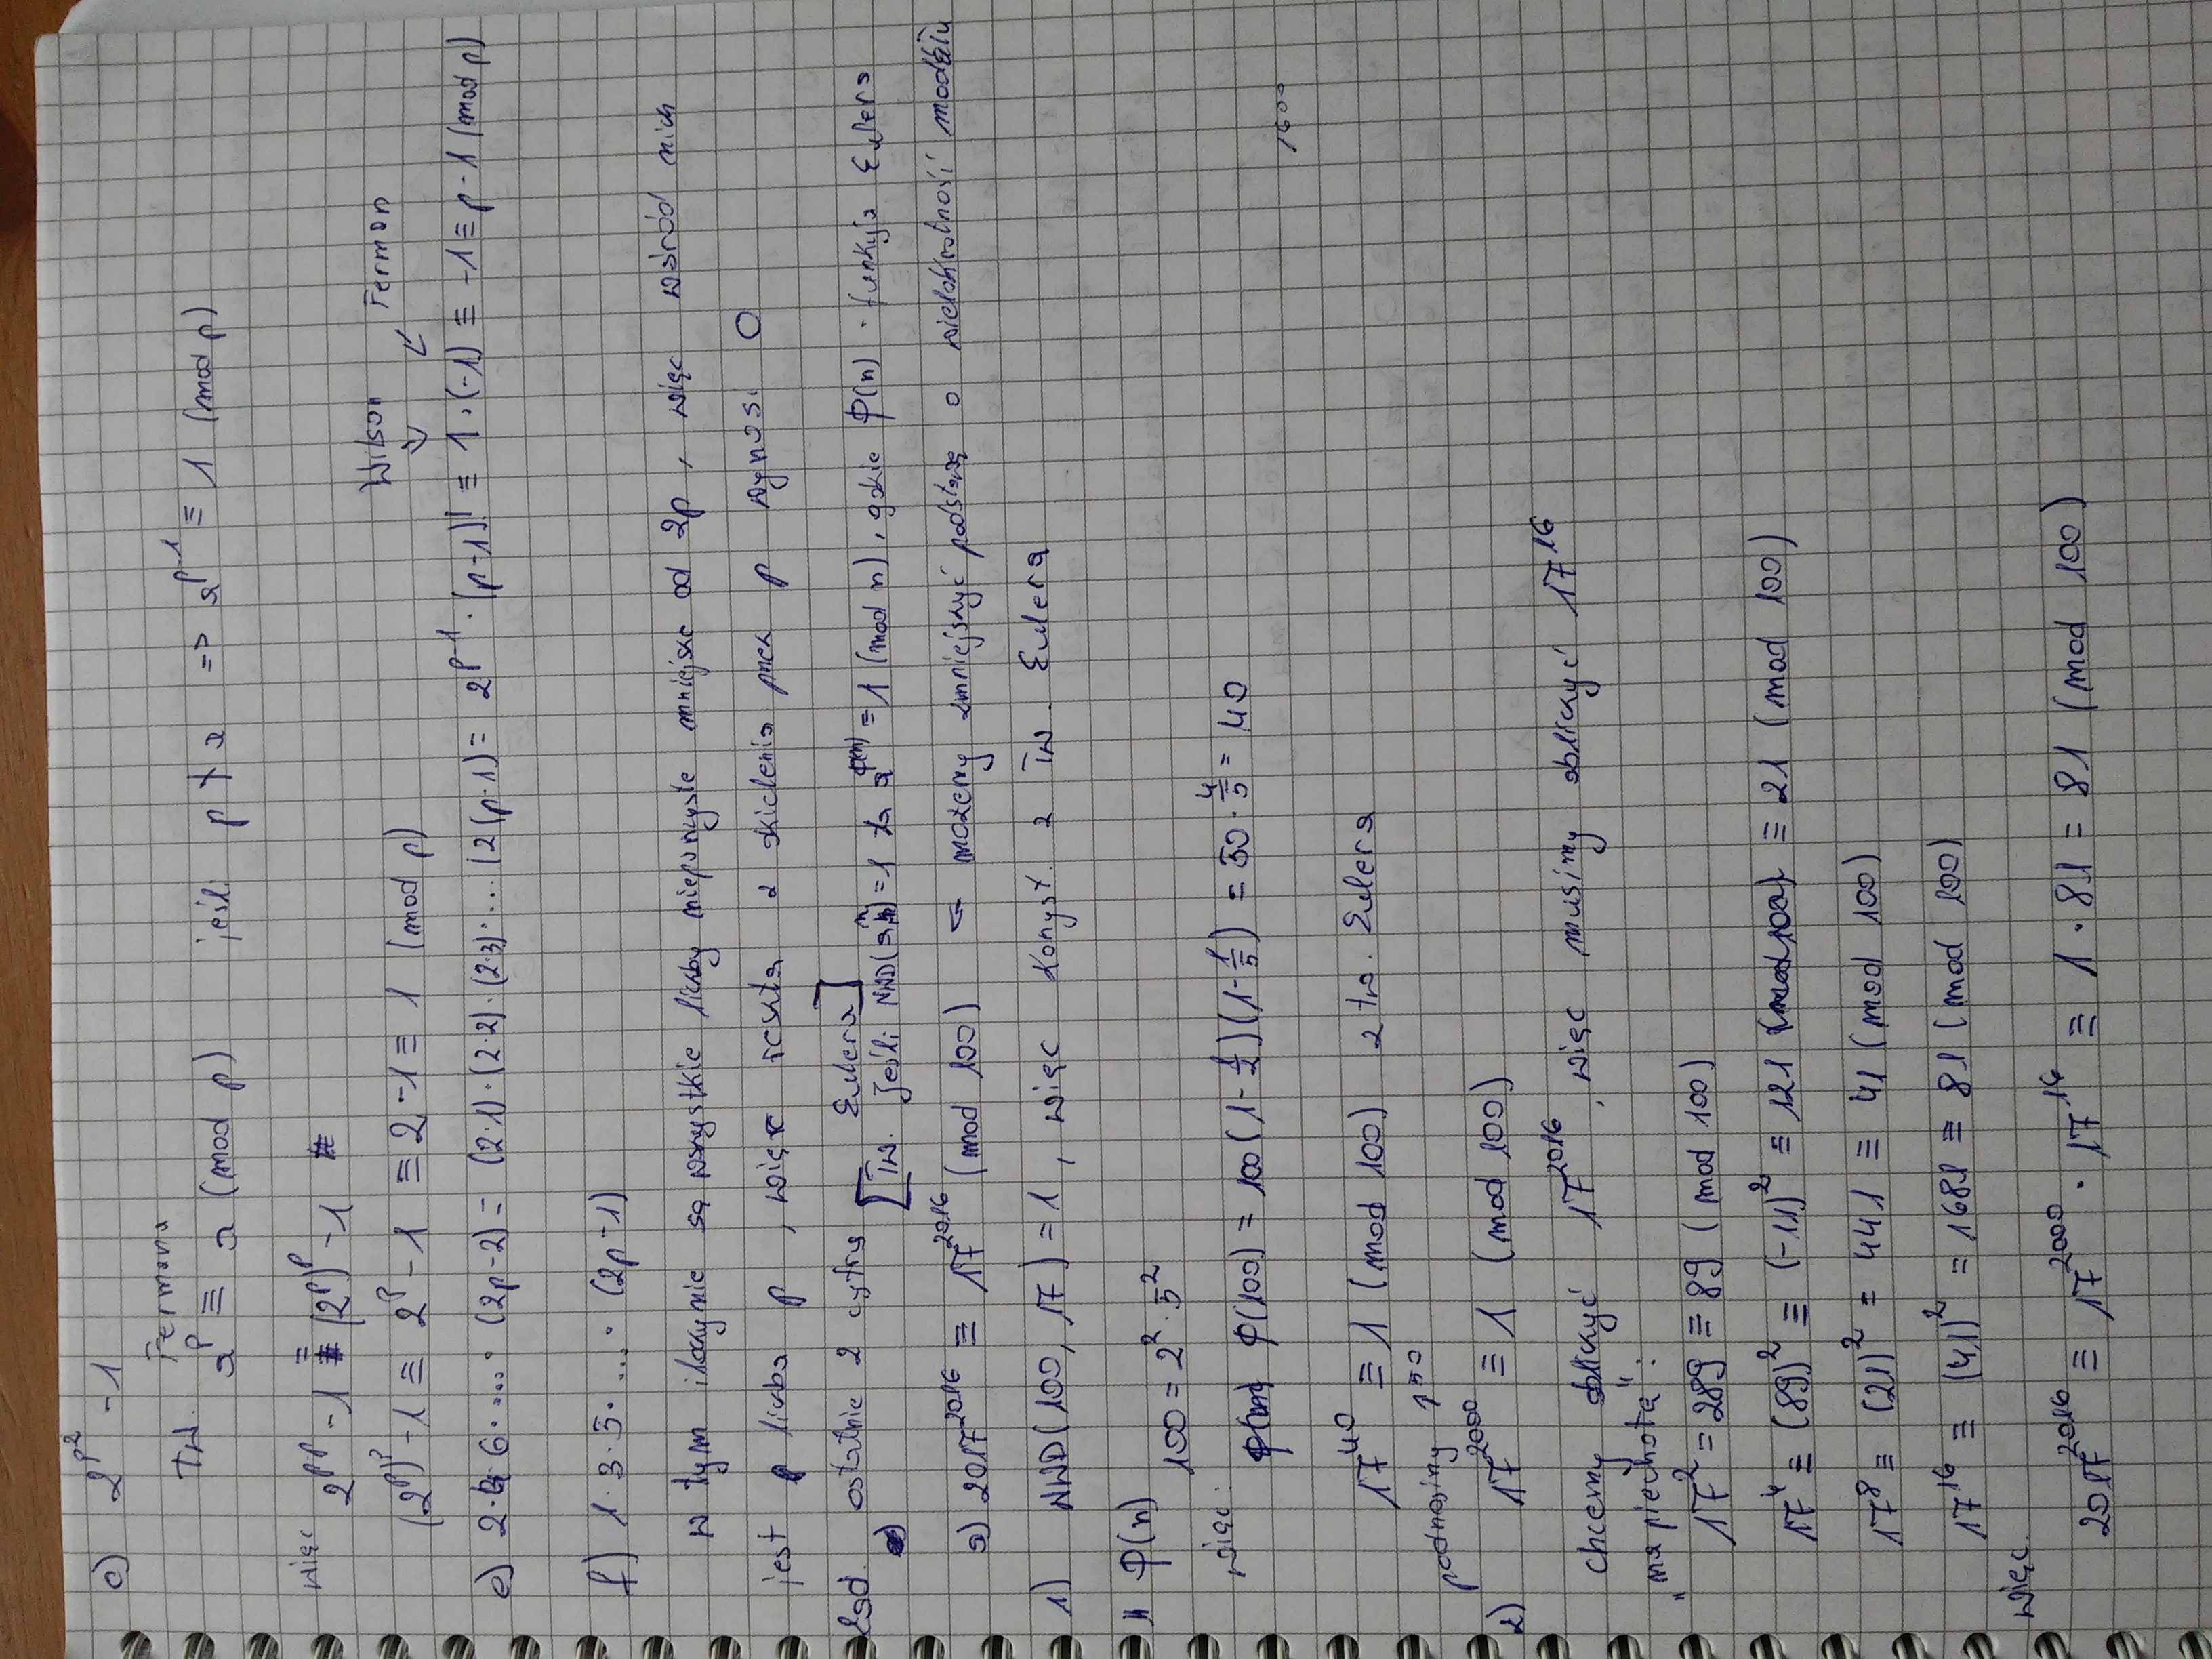 c) 2^{p^2} - 1
Tw. Fermata
a^p ≡ a (mod p) jeśli p ∤ a => a^{p-1} ≡ 1 (mod p)
więc
2^{p·p} - 1 ≡ (2^p)^p - 1
(2^p)^p - 1 ≡ 2^p - 1 ≡ 2 - 1 ≡ 1 (mod p)
Wilson Fermat
e) 2·4·6·....·(2p-2) = (2·1)·(2·2)·(2·3)·...(2(p-1) = 2^{p-1}·(p-1)! ≡ 1·(-1) ≡ -1 ≡ p-1 (mod p)
f) 1·3·5·...·(2p-1)
w tym iloczynie są wszystkie liczby nieparzyste mniejsze od 2p, więc wśród nich
jest liczba p, więc reszta z dzielenia przez p wynosi 0
Zad. ostatnie 2 cyfry
[Tw. Eulera] Jeśli NWD(a,n)=1 to a^{φ(n)} ≡ 1 (mod n), gdzie φ(n) - funkcja Eulera
a) 2017^{2016} ≡ 17^{2016} (mod 100) ← możemy zmniejszyć podstawę o wielokrotność modułu
1) NWD(100, 17) = 1, więc korzyst. z Tw. Eulera
φ(n)
100 = 2^2 · 5^2
więc:
φ(100) = 100(1-\frac{1}{2})(1-\frac{1}{5}) = 50·\frac{4}{5} = 40
1600
17^{40} ≡ 1 (mod 100) z tw. Eulera
podnosimy 1^{50}
2) 17^{2000} ≡ 1 (mod 100)
chcemy obliczyć 17^{2016}, więc musimy obliczyć 17^{16}
„na piechotę”:
17^2 = 289 ≡ 89 (mod 100)
17^4 ≡ (89)^2 ≡ (-11)^2 ≡ 121 ≡ 21 (mod 100)
17^8 ≡ (21)^2 = 441 ≡ 41 (mod 100)
17^{16} ≡ (41)^2 = 1681 ≡ 81 (mod 100)
więc.
2017^{2016} ≡ 17^{2000} · 17^{16} ≡ 1·81 = 81 (mod 100)